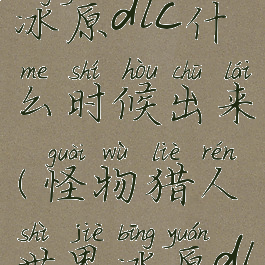 冰原dlc什
me shí hòu chū lái
么时候出来
guài wù liè rén
(怪物猎人
shì jiè bīng yuán
世界冰原dl